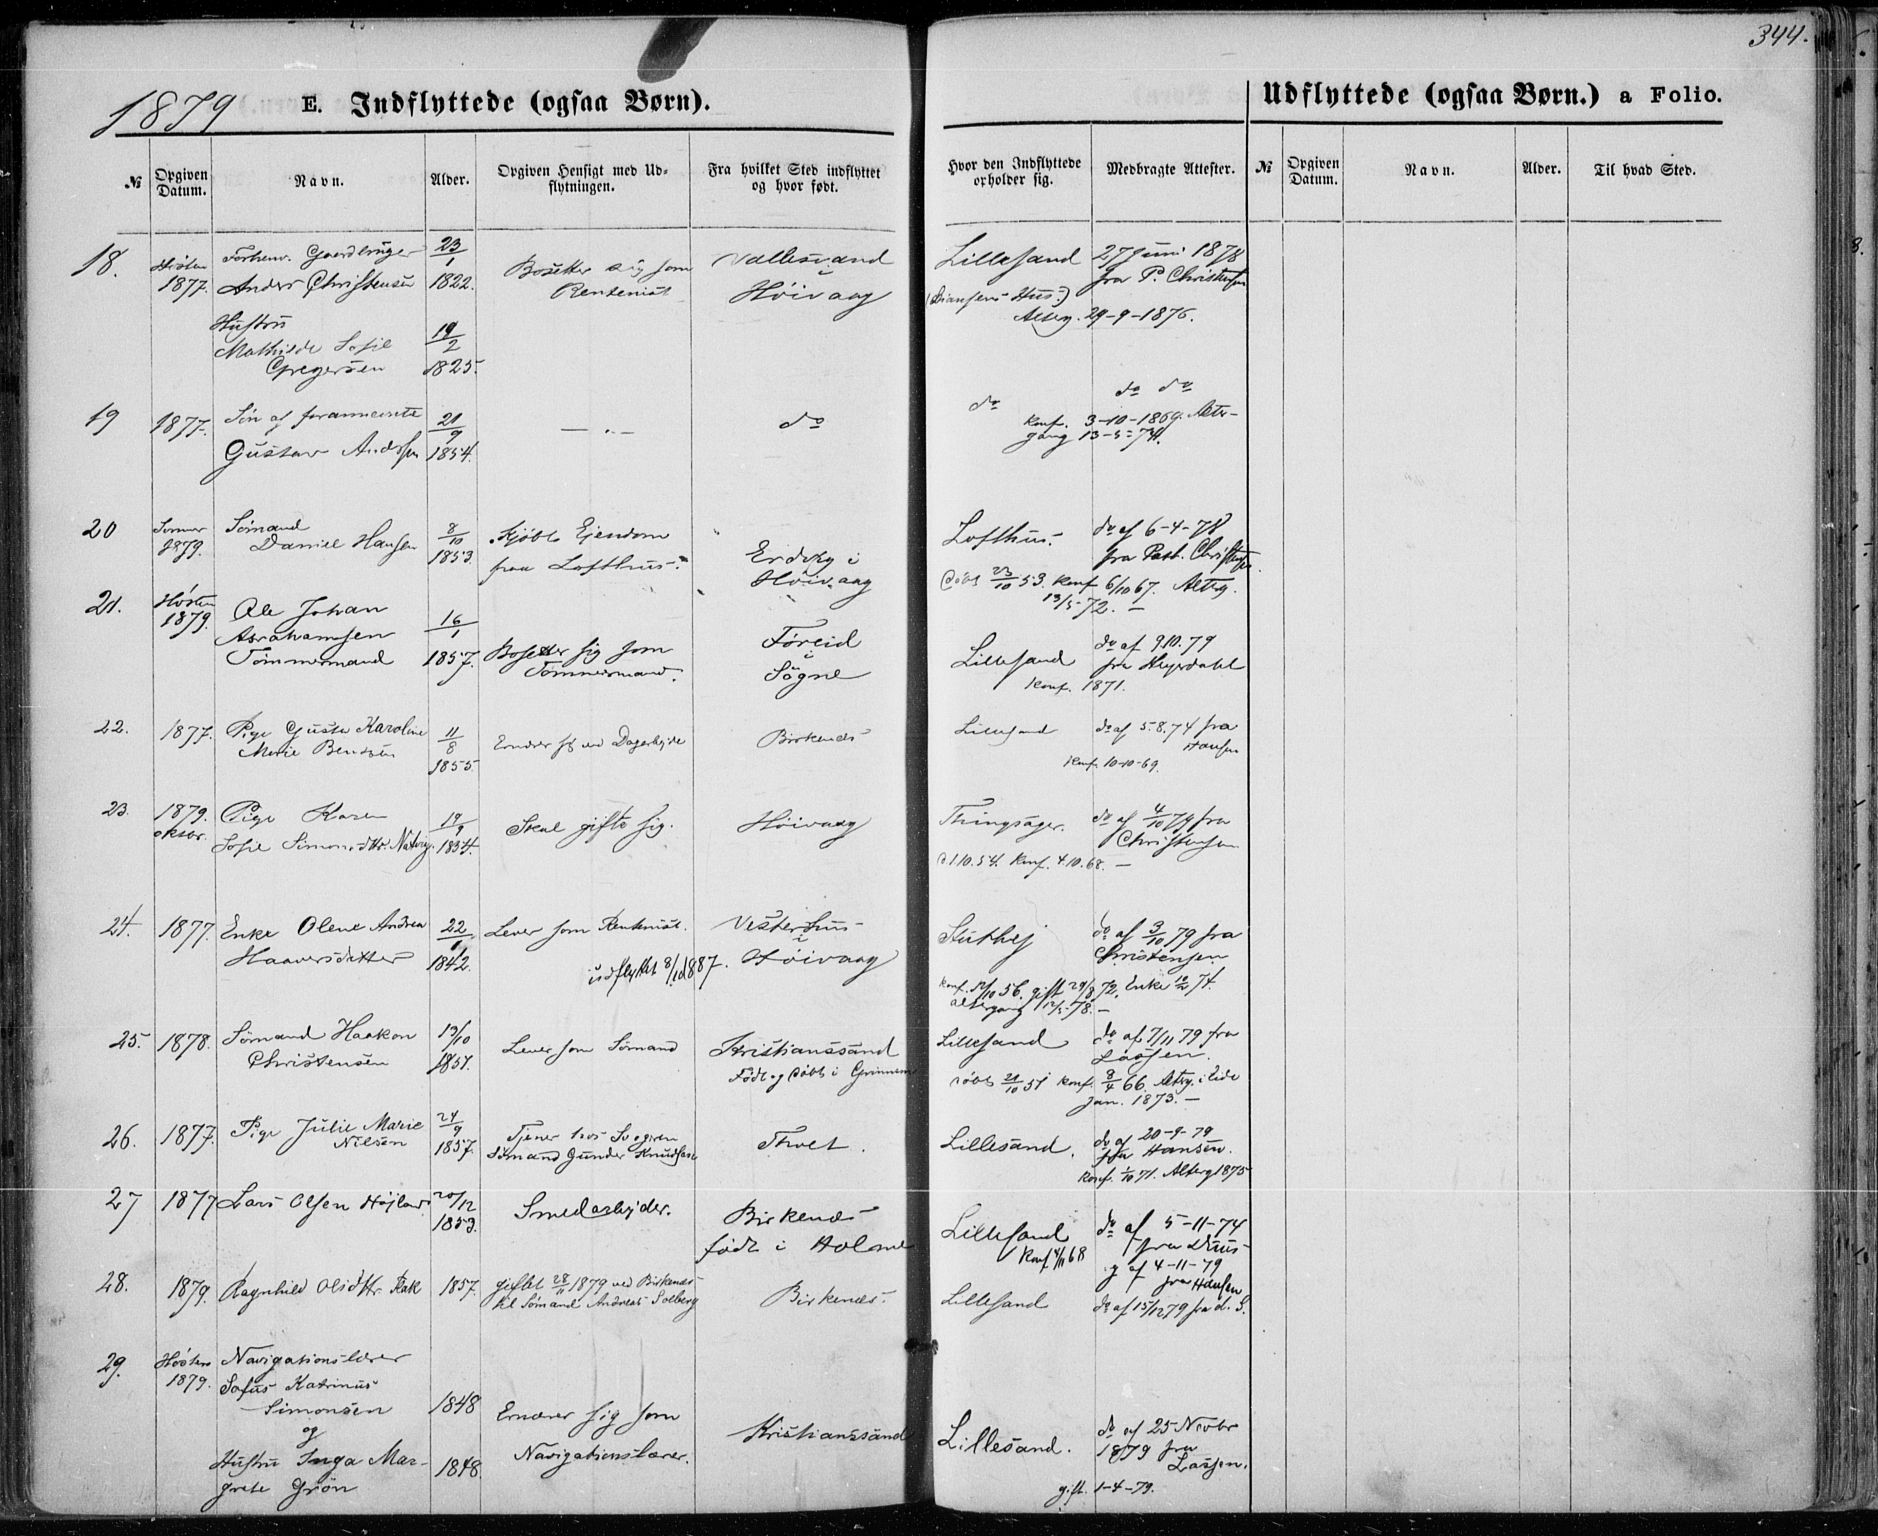 344.
1879
E. Indflyttede (ogsaa Børn).
Udflyttede (ogsaa Børn.) a Folio.
№
Opgiven Datum.
Navn.
Alder.
Opgiven Hensigt med Ud-
flytningen.
Fra hvilket Sted indflyttet
og hvor født.
Hvor den Indflyttede
opholder sig.
Medbragte Attester.
№
Opgiven Datum.
Navn.
Alder.
Til hvad Sted.
18.
Høsten
1877.
Forhenv.
Anders Christensen
23/1
1822.
Bosetter sig som
Rentenist
Vallesvand
i
Høivaag
Lillesand
27 Juni 1878
fra P. Christensen
Hus.)
Alterg. 29-9-1876.
Hustru
Mathilde Sofie
Gregersen
19/2
1825.
19
1877.
Søn af forannævnte
Gustav Anderssen
21/9
1854.
— " —
do
do
do do
Konf. 3-10-1869. Alter-
gang 13-5-74.
20
Sommer
1879.
Sømand
Daniel Hansen
8/10
1853.
Kjøbt Ejendom
paa Lofthus.
i
Høivaag
Lofthus.
do af 6-4-78
fra Past. Christensen
Døbt 23/10 53. Konf 6/10 67. Alterg.
13/5 72. —
21.
Høsten
1879.
Ole Johan
Abrahamsen
Tømmermand
16/1
1857.
Bosetter sig som
Tømmermand.
Føreid
i
Søgne
Lillesand
do af 9.10.79
fra Heyerdahl
Konf. 1871.
22.
1877.
Pige Gusta Karoline
Marie Bendsen
11/8
1855.
Ernærer sig ved Dagarbejde
Birkenæs
Lillesand
do af 5.8.74 fra
Hansen
Konf. 10-10-69.
23.
1879.
oktbr.
Pige Karen
Sofie Simonsdtr.
19/9
1854.
Skal gifte sig.
Høivaag
Thingsager.
do af 4/10 79 fra
Christensen
d. 1.10.54. Konf. 4.10.68. —
24.
1877.
Enke Olene Andrea
Haaversdatter
22/1
1842.
Lever som Rentenist.
udflyttet 8/1 1887.
Vesterhus
i
Høivaag
Stuthej
do af 3/10 79 fra
Christensen
Konf. 12/10 56. gift 29/8 72. Enke 12/2 74.
altergang 12/5-78. —
25.
1878.
Sømand Haakon
Christensen
13/10
1851.
Lever som Sømand
Kristianssand
Født og døbt i
Lillesand
do af 7/11 79 fra
Lassen.
døbt 21/10 51 konf. 8/4 66. Alterg. i
Jan. 1873. —
26.
1877.
Pige Julie Marie
Nilsen
24/9
1857.
Tjener hos Svogeren
Sømand Gunder Knudsen
Thvet.
Lillesand.
do af 20-9-79
fra Hansen.
Konf. 1/10 71. Alterg 1875
27
1877
Lars Olsen Højland
20/12
1853.
Smedarbejder.
Birkenæs
født i Holme
Lillesand
Konf 4/11 68
do af 5-11-74
fra
og af 4-11-79
fra Hansen
28.
1879.
Ragnhild Olsdtr. Rak
1857.
giftet 28/11 1879 ved Birkenæs
til Sømand Andreas Solberg
Birkenæs.
Lillesand
do af 15/12 79 fra d. S.
29.
Høsten
1879.
Navigationslærer
Sofus Katrinus
Simonsen
og
Hustru Inga Mar-
grete Grøn
1848
1848.
Ernærer sig som
Navigationslærer.
Kristianssand
Lillesand.
do af 25 Novbr
1879 fra
Lassen.
gift. 1-4-79.